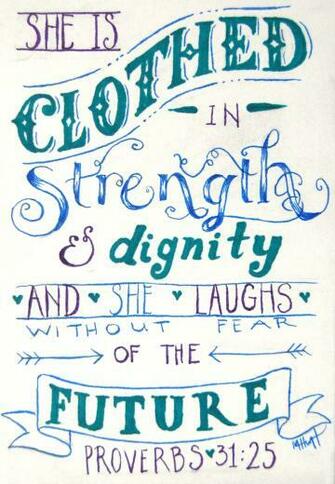 SHE IS
CLOTHED
IN
Strength
& dignity
AND ♥ SHE ♥ LAUGHS ♥
WITHOUT FEAR
OF THE
FUTURE
PROVERBS ♥ 31:25